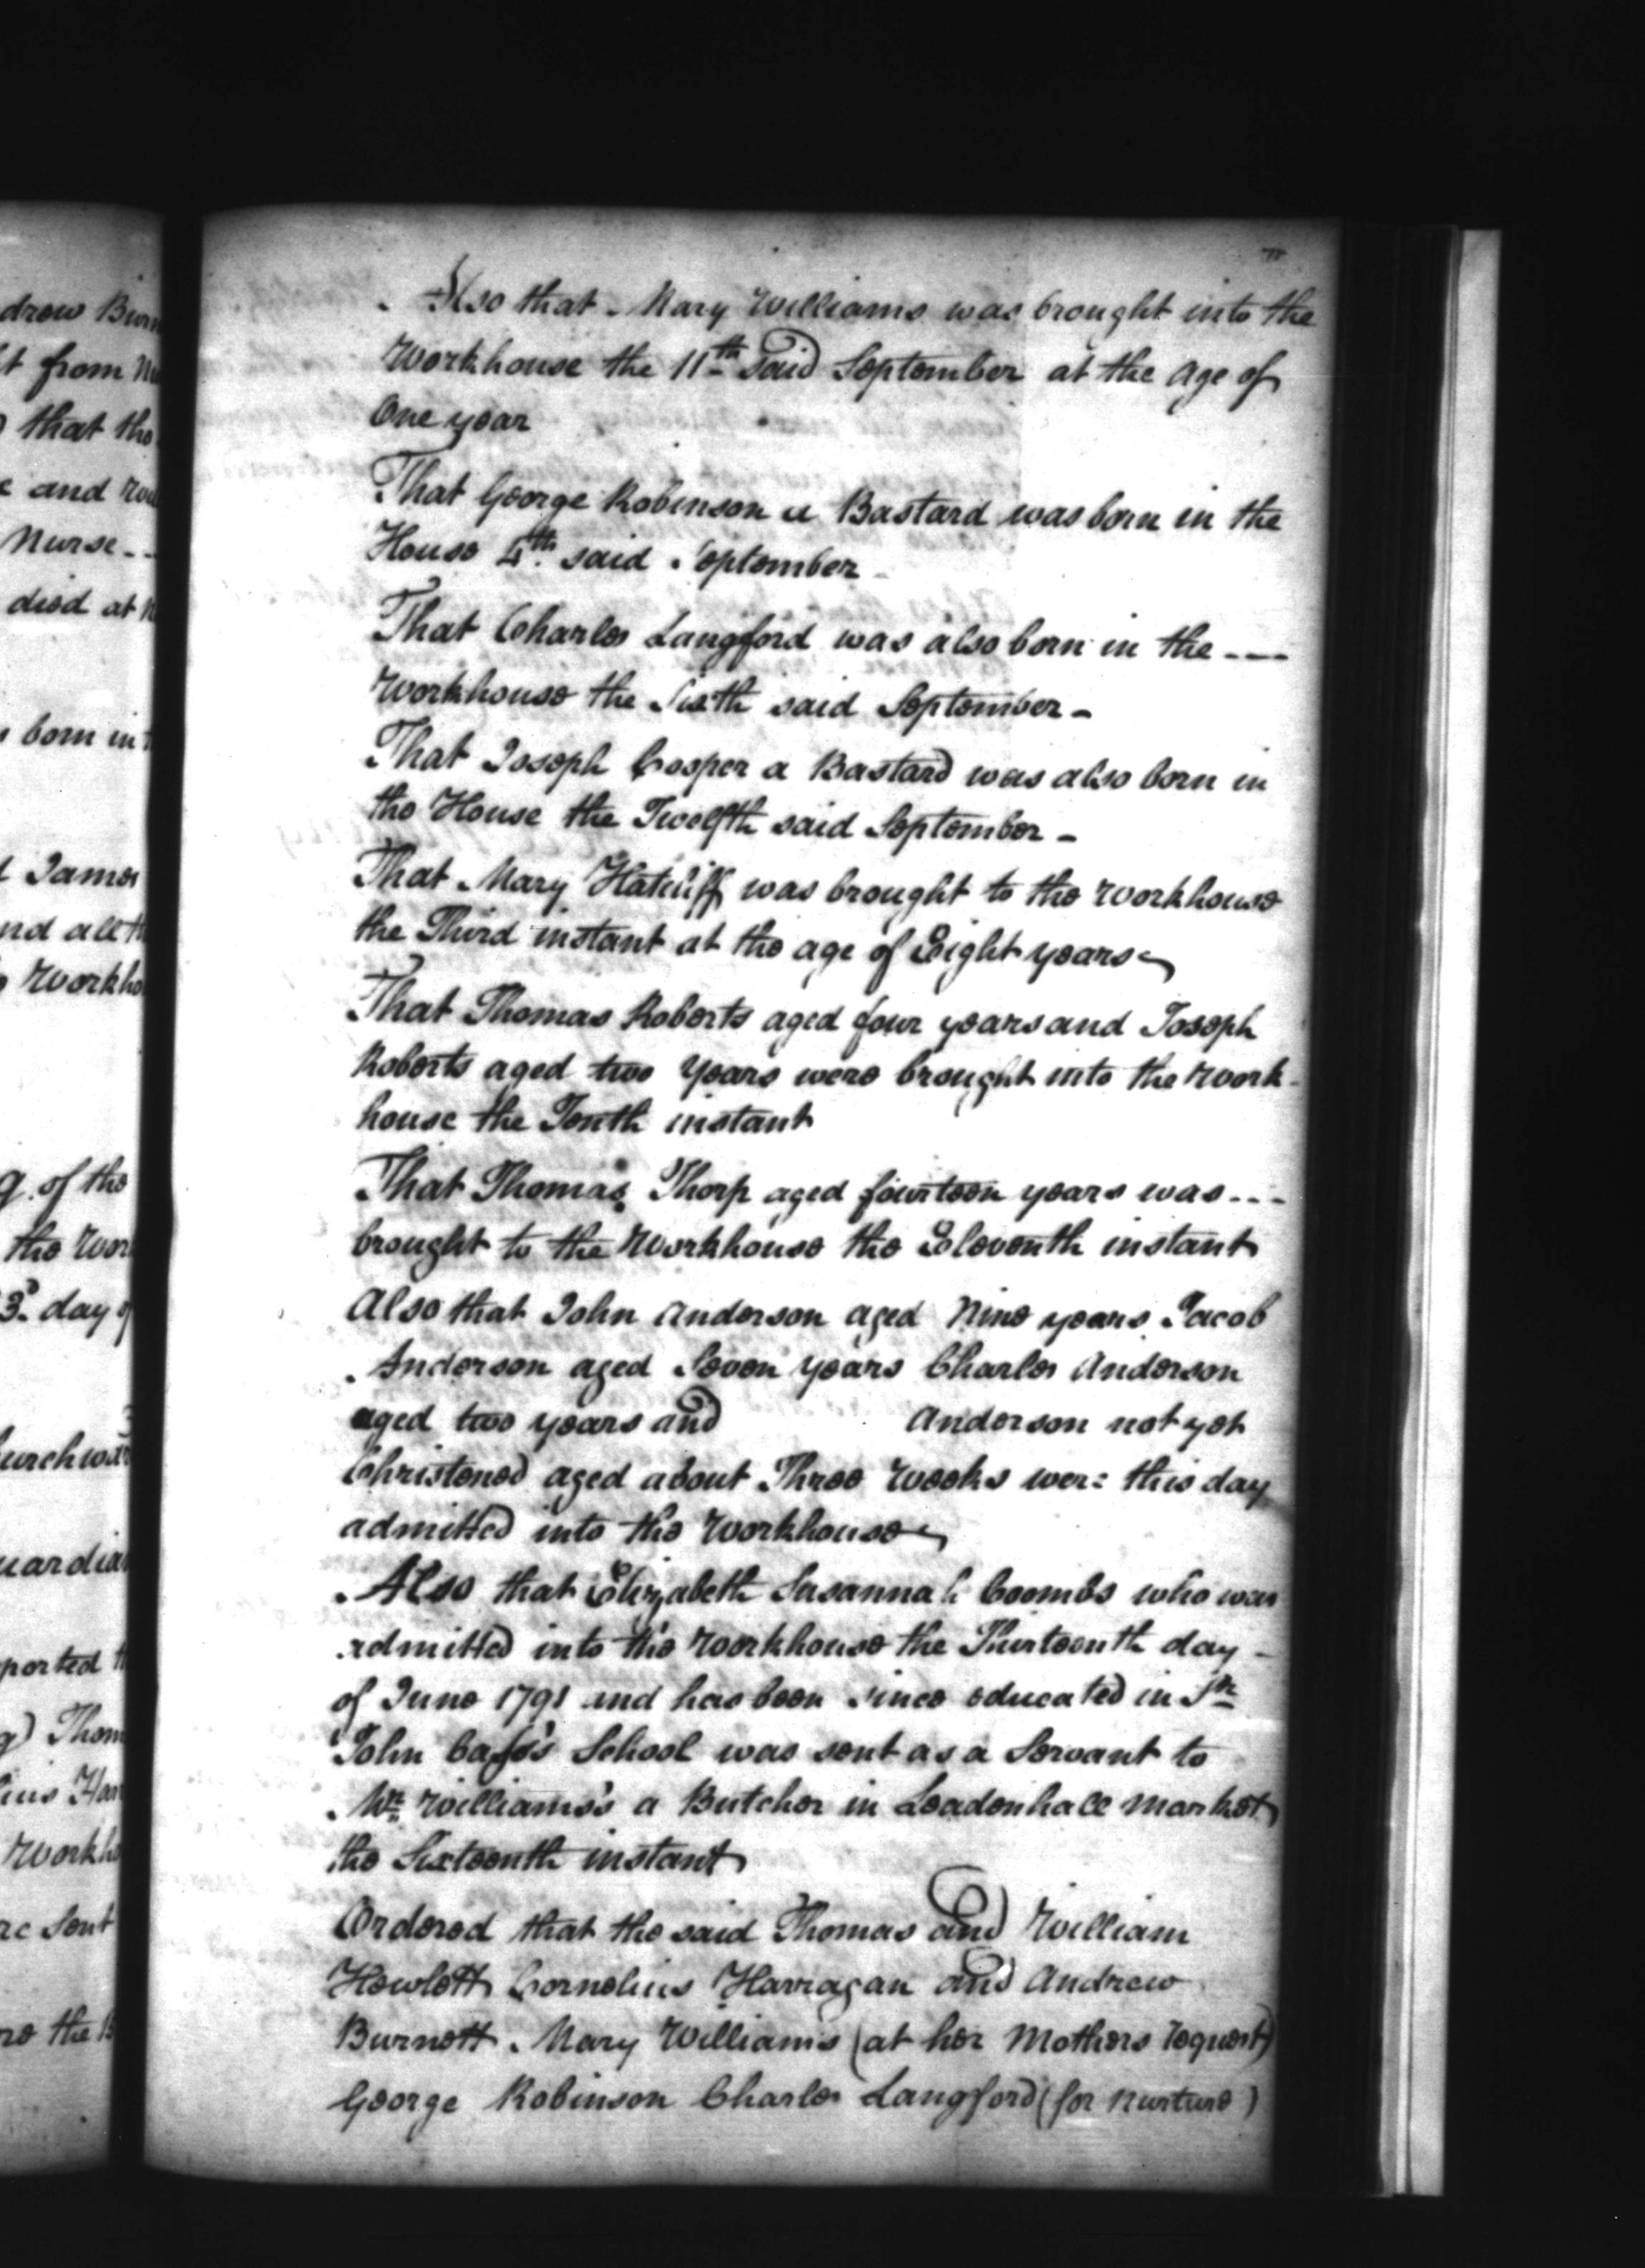 drew Burn
t from Nu
that the
e and
Nurse --
died at N
born in
James
nd all th
Workho
g. of the
the Wor
3d. day of
urchwar
uardian
ported th
g) Thom
lius Har
Workho
re sent
re the B
Also that Mary Williams was brought into the
Workhouse the 11th said September at the age of
One year
That George Robinson a Bastard was born in the
House 4th. said September -
That Charles Langford was also born in the ---
Workhouse the Sixth said September -
That Joseph Cooper a Bastard was also born in
the House the Twelfth said September -
That Mary Hatcliff was brought to the Workhouse
the Third instant at the age of Eight years
That Thomas Roberts aged four years and Joseph
Roberts aged two Years were brought into the Work-
house the Tenth instant
That Thomas Thorp aged fourteen years was ---
brought to the Workhouse the Eleventh instant
Also that John Anderson aged Nine years Jacob
Anderson aged Seven Years Charles Anderson
aged two years and Anderson not yet
Christened aged about Three Weeks were this day
admitted into the Workhouse
Also that Elizabeth Susannah Coombs who was
admitted into the Workhouse the Thirteenth day -
of June 1791 and has been since educated in Sr.
John Cass's School was sent as a Servant to
Mr. Williams's a Butcher in Leadenhall Market
the Sixteenth instant
Ordered that the said Thomas and William
Howlett Cornelius Harragan and Andrew
Burnett Mary Williams (at her Mothers request)
George Robinson Charles Langford (for Nurture)